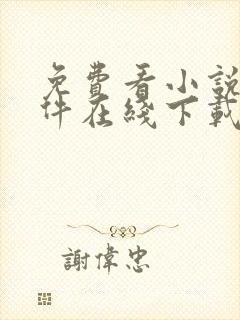 免費看小說
件在綫下載
謝偉忠